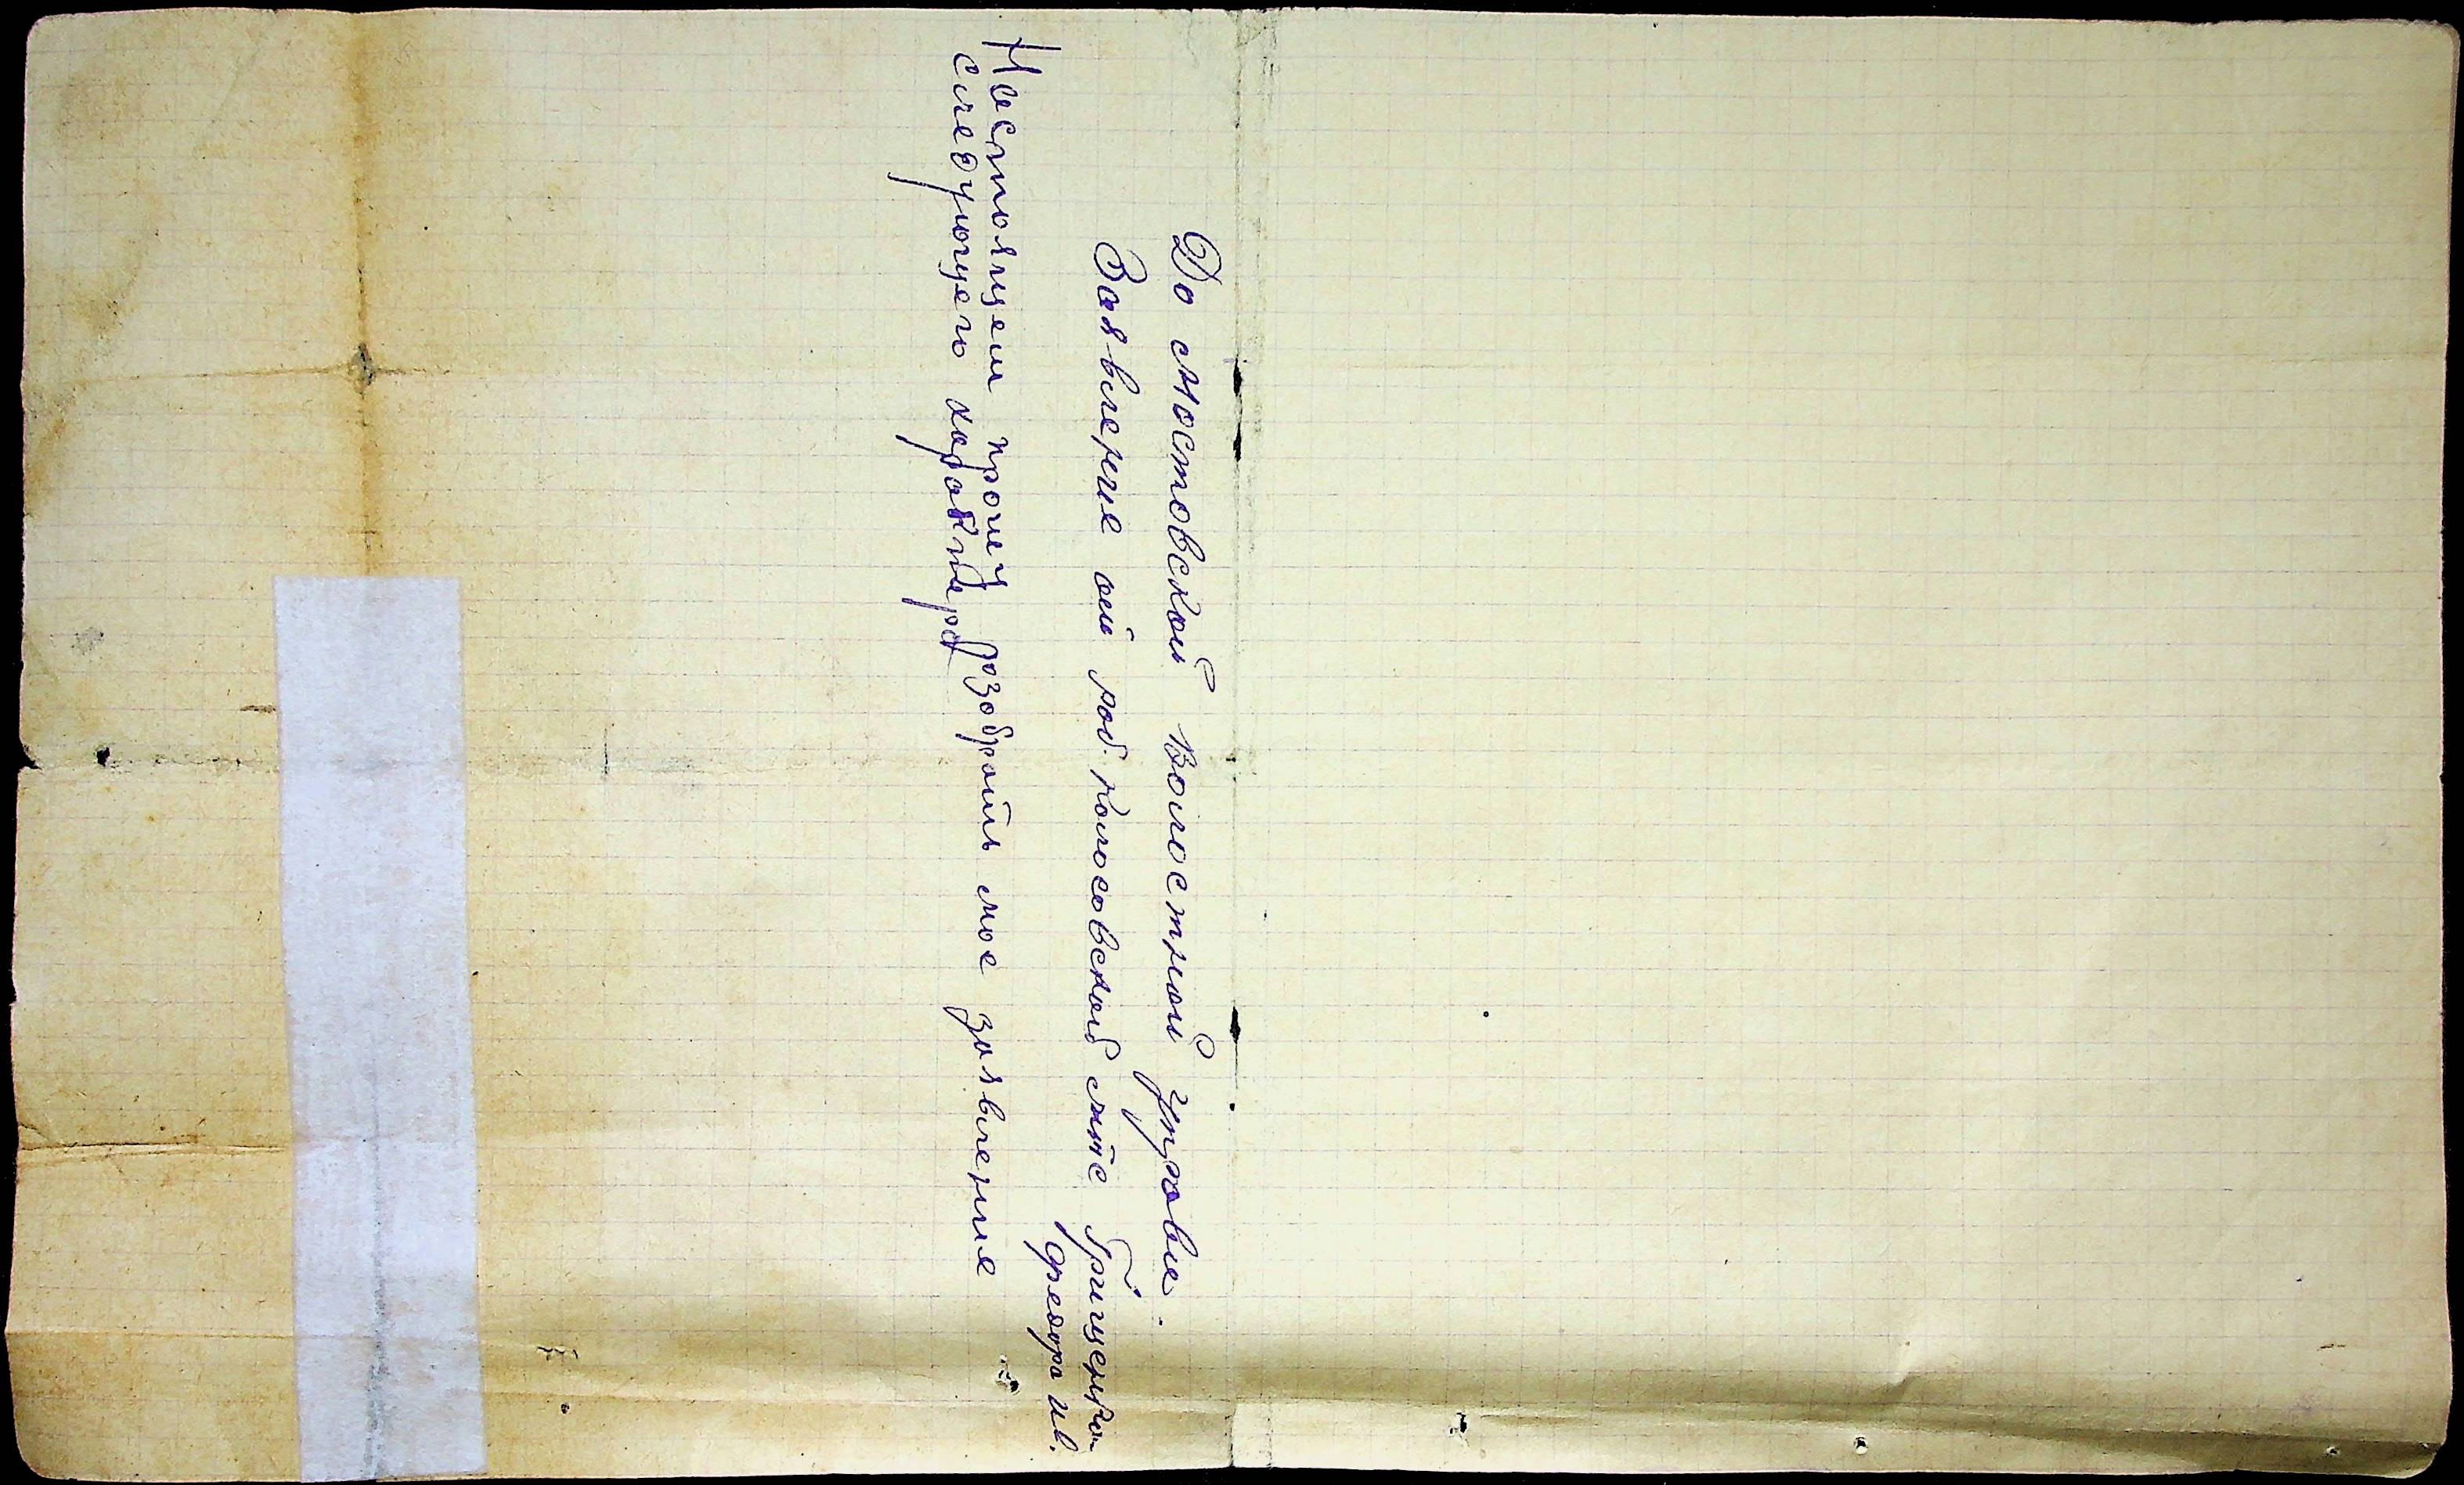 До Мостовской волостной управе.
Заявление от род. Колосовской ст. Грищенко
Федора ив.
Настоящем прошу розобрать мое заявление
следующего характера